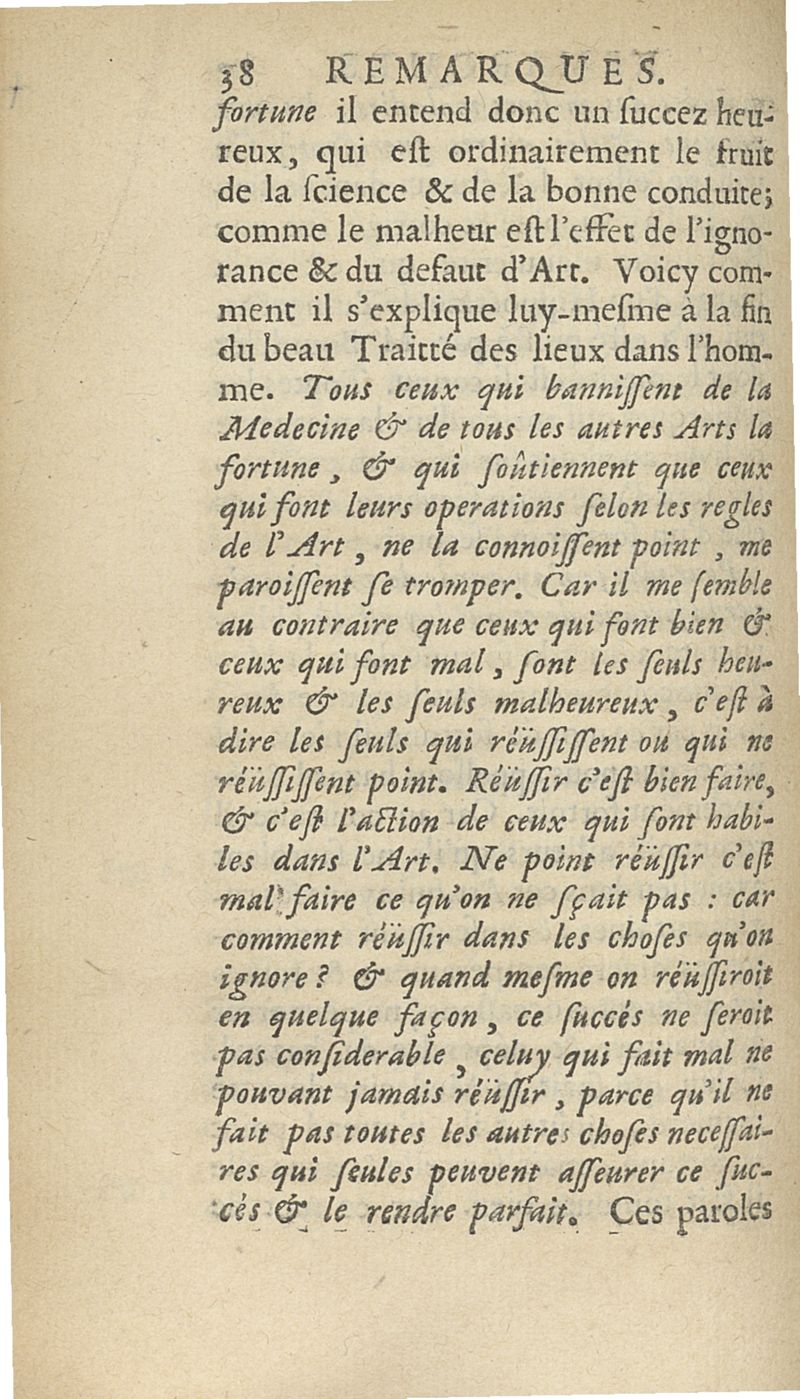 38 REMARQUES.
fortune il entend donc un ſuccez heu-
reux, qui eſt ordinairement le fruit
de la ſcience & de la bonne conduite;
comme le malheur eſt l'effet de l'igno-
rance & du defaut d'Art. Voicy com-
ment il s'explique luy-meſme à la fin
du beau Traitté des lieux dans l'hom-
me. Tous ceux qui banniſſent de la
Medecine & de tous les autres Arts la
fortune, & qui ſoûtiennent que ceux
qui font leurs operations ſelon les regles
de l'Art, ne la connoiſſent point, me
paroiſſent ſe tromper. Car il me ſemble
au contraire que ceux qui font bien &
ceux qui font mal, ſont les ſeuls heu-
reux & les ſeuls malheureux, c'eſt à
dire les ſeuls qui réüſſiſſent ou qui ne
réüſſiſſent point. Réüſſir c'eſt bien faire,
& c'eſt l'action de ceux qui ſont habi-
les dans l'Art. Ne point réüſſir c'eſt
mal faire ce qu'on ne ſçait pas : car
comment réüſſir dans les choſes qu'on
ignore? & quand meſme on réüſſiroit
en quelque façon, ce ſuccés ne ſeroit
pas conſiderable, celuy qui fait mal ne
pouvant jamais réüſſir, parce qu'il ne
fait pas toutes les autres choſes neceſſai-
res qui ſeules peuvent aſſeurer ce ſuc-
cés & le rendre parfait. Ces paroles